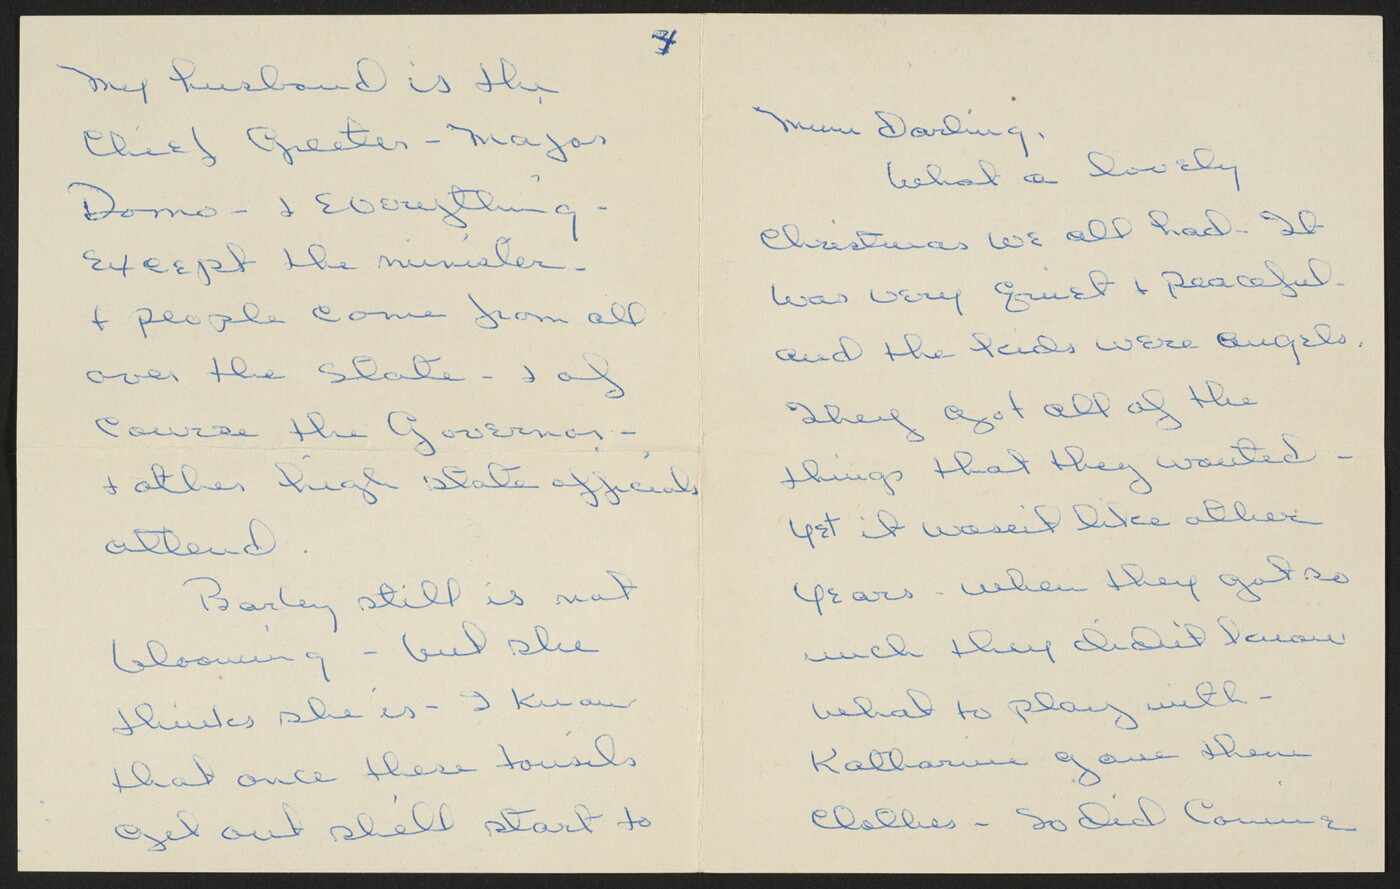 4
My husband is the
Chief Greeter - Major
Domo - & Everything -
except the minister -
& people come from all
over the State - & of
course the Governor -
& other high state officials
attend.
Barley still is not
blooming - but she
thinks she is - I know
that once these tonsils
get out she'll start to
Mum Darling,
What a lovely
Christmas we all had - It
was very quiet & peaceful -
and the kids were angels.
They got all of the
things that they wanted -
yet it wasn't like other
years - when they got so
much they didn't know
what to play with -
Katharine gave them
clothes - so did Connie